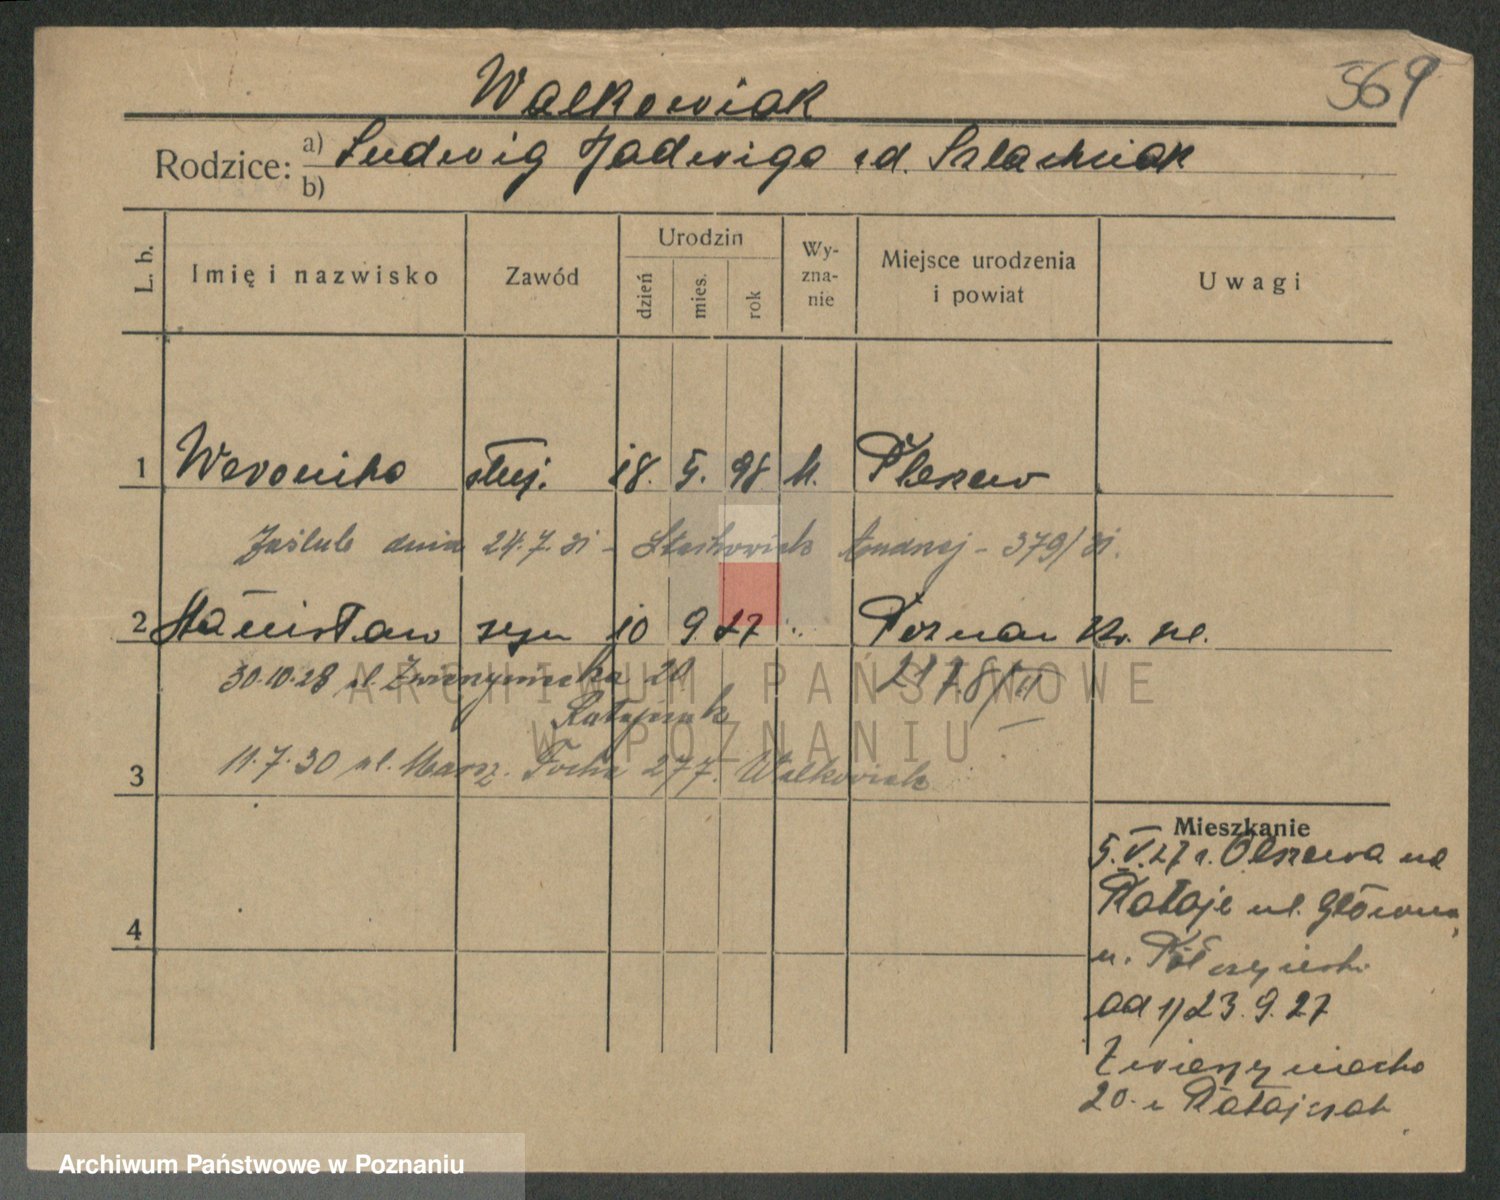 Walkowiak
569
Rodzice: a) Ludwig Jadwiga z d. Szlachciak
b)
L. b.
Imię i nazwisko
Zawód
Urodzin
dzień
mies.
rok
Wy-
zna-
nie
Miejsce urodzenia
i powiat
Uwagi
1 Weronika służ. 18. 5. 98 k. Pleszew
Zaślub dnia 24.7.31 - Stachowiak Andrzej - 379/31.
2 Stanisław syn 10 9 27 ..  Poznań
2178/II
30.10.28 ul. Zwierzyniecka 20
Ratajczak
11.7.30 ul. Marsz. Focha 277. Walkowiak
3
4
Mieszkanie
5.V.27 r. Olszewa na
Rataje ul. Główna
u.
od 1) 23.9.27
Zwierzyniecka
20 u Ratajczak
ARCHIWUM PAŃSTWOWE
W POZNANIU
Archiwum Państwowe w Poznaniu